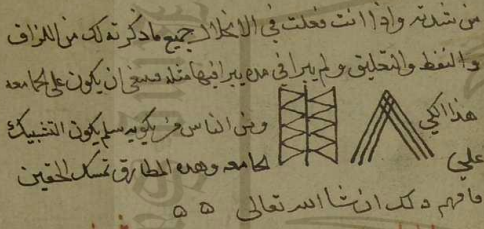 من شدته واذا انت فعلت في الانخلاع جميع ما ذكرته لك من اللزاق
والنفط والتعليق ولم يبرا في مده يبرا فيها مثله فينبغي ان يكون على الجامعه
هذا الكي ومن الناس من يكويه سلم يكون التشبيك
على الجامعه وهذه المطارق تمسك الحقين
فافهم ذلك ان شا الله تعالى